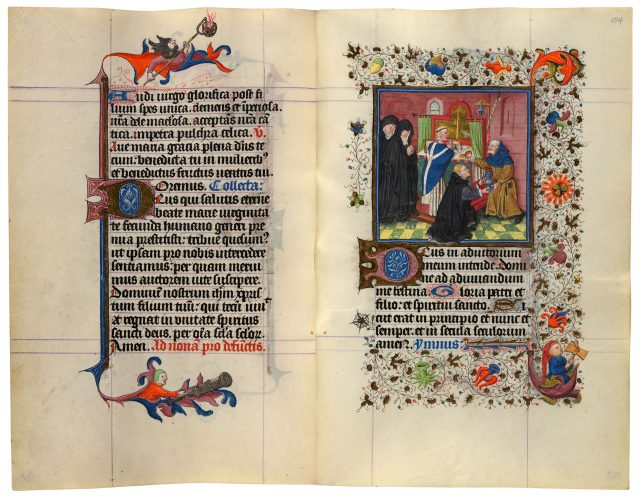 Audi uirgo glorifica post fi
lium spes unica. clemens et īperiosa.
nr̄a dele maclosa. acceptās nr̄a cā
tica. impetra pulchra celica. V.
Aue maria gracia plena dn̄s te
cum: benedicta tu in mulierib⁹
et benedictus fructus uentris tui.
Oremus. Collecta:
Deus qui salutis eterne
beate marie uirginita
te fecunda humano generi pre
mia prestitisti: tribue quesum⁹
ut ipsam pro nobis intercedere
sentiamus: per quam merui
mus auctorem uite suscipere.
Dominum nostrum ih̄m xp̄ris
tum filium tuū: qui tecū uiuit
et regnat in unitate spiritus
sancti deus. per oīa sc̄la sc̄lor.
Amen. Ad nonā pro defūctis.
104
Deus in adiutorium
meum intende. Domi
ne ad adiuuandum
me festina. Gloria patri et
filio: et spiritui sancto. Si
cut erat in principio et nunc et
semper. et in secula seculorum
amen. Ymnus: